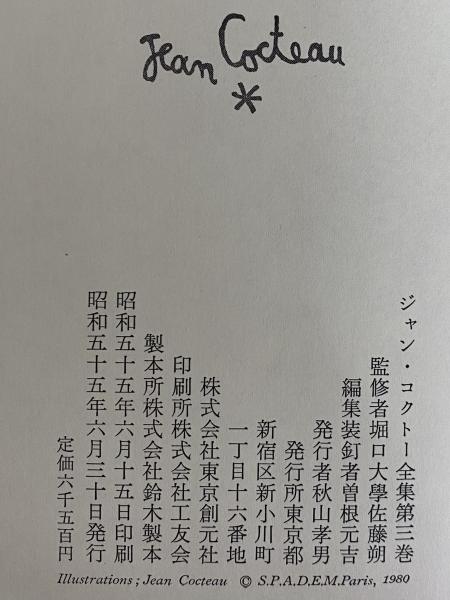 Jean Cocteau
*
ジャン・コクトー全集第三巻
監修者堀口大學佐藤朔
編集装釘者曽根元吉
発行者秋山孝男
発行所東京都
新宿区新小川町
一丁目十六番地
株式会社東京創元社
印刷所株式会社工友会
製本所株式会社鈴木製本
昭和五十五年六月十五日印刷
昭和五十五年六月三十日発行
定価六千五百円
Illustrations ; Jean Cocteau © S.P.A.D.E.M.Paris, 1980